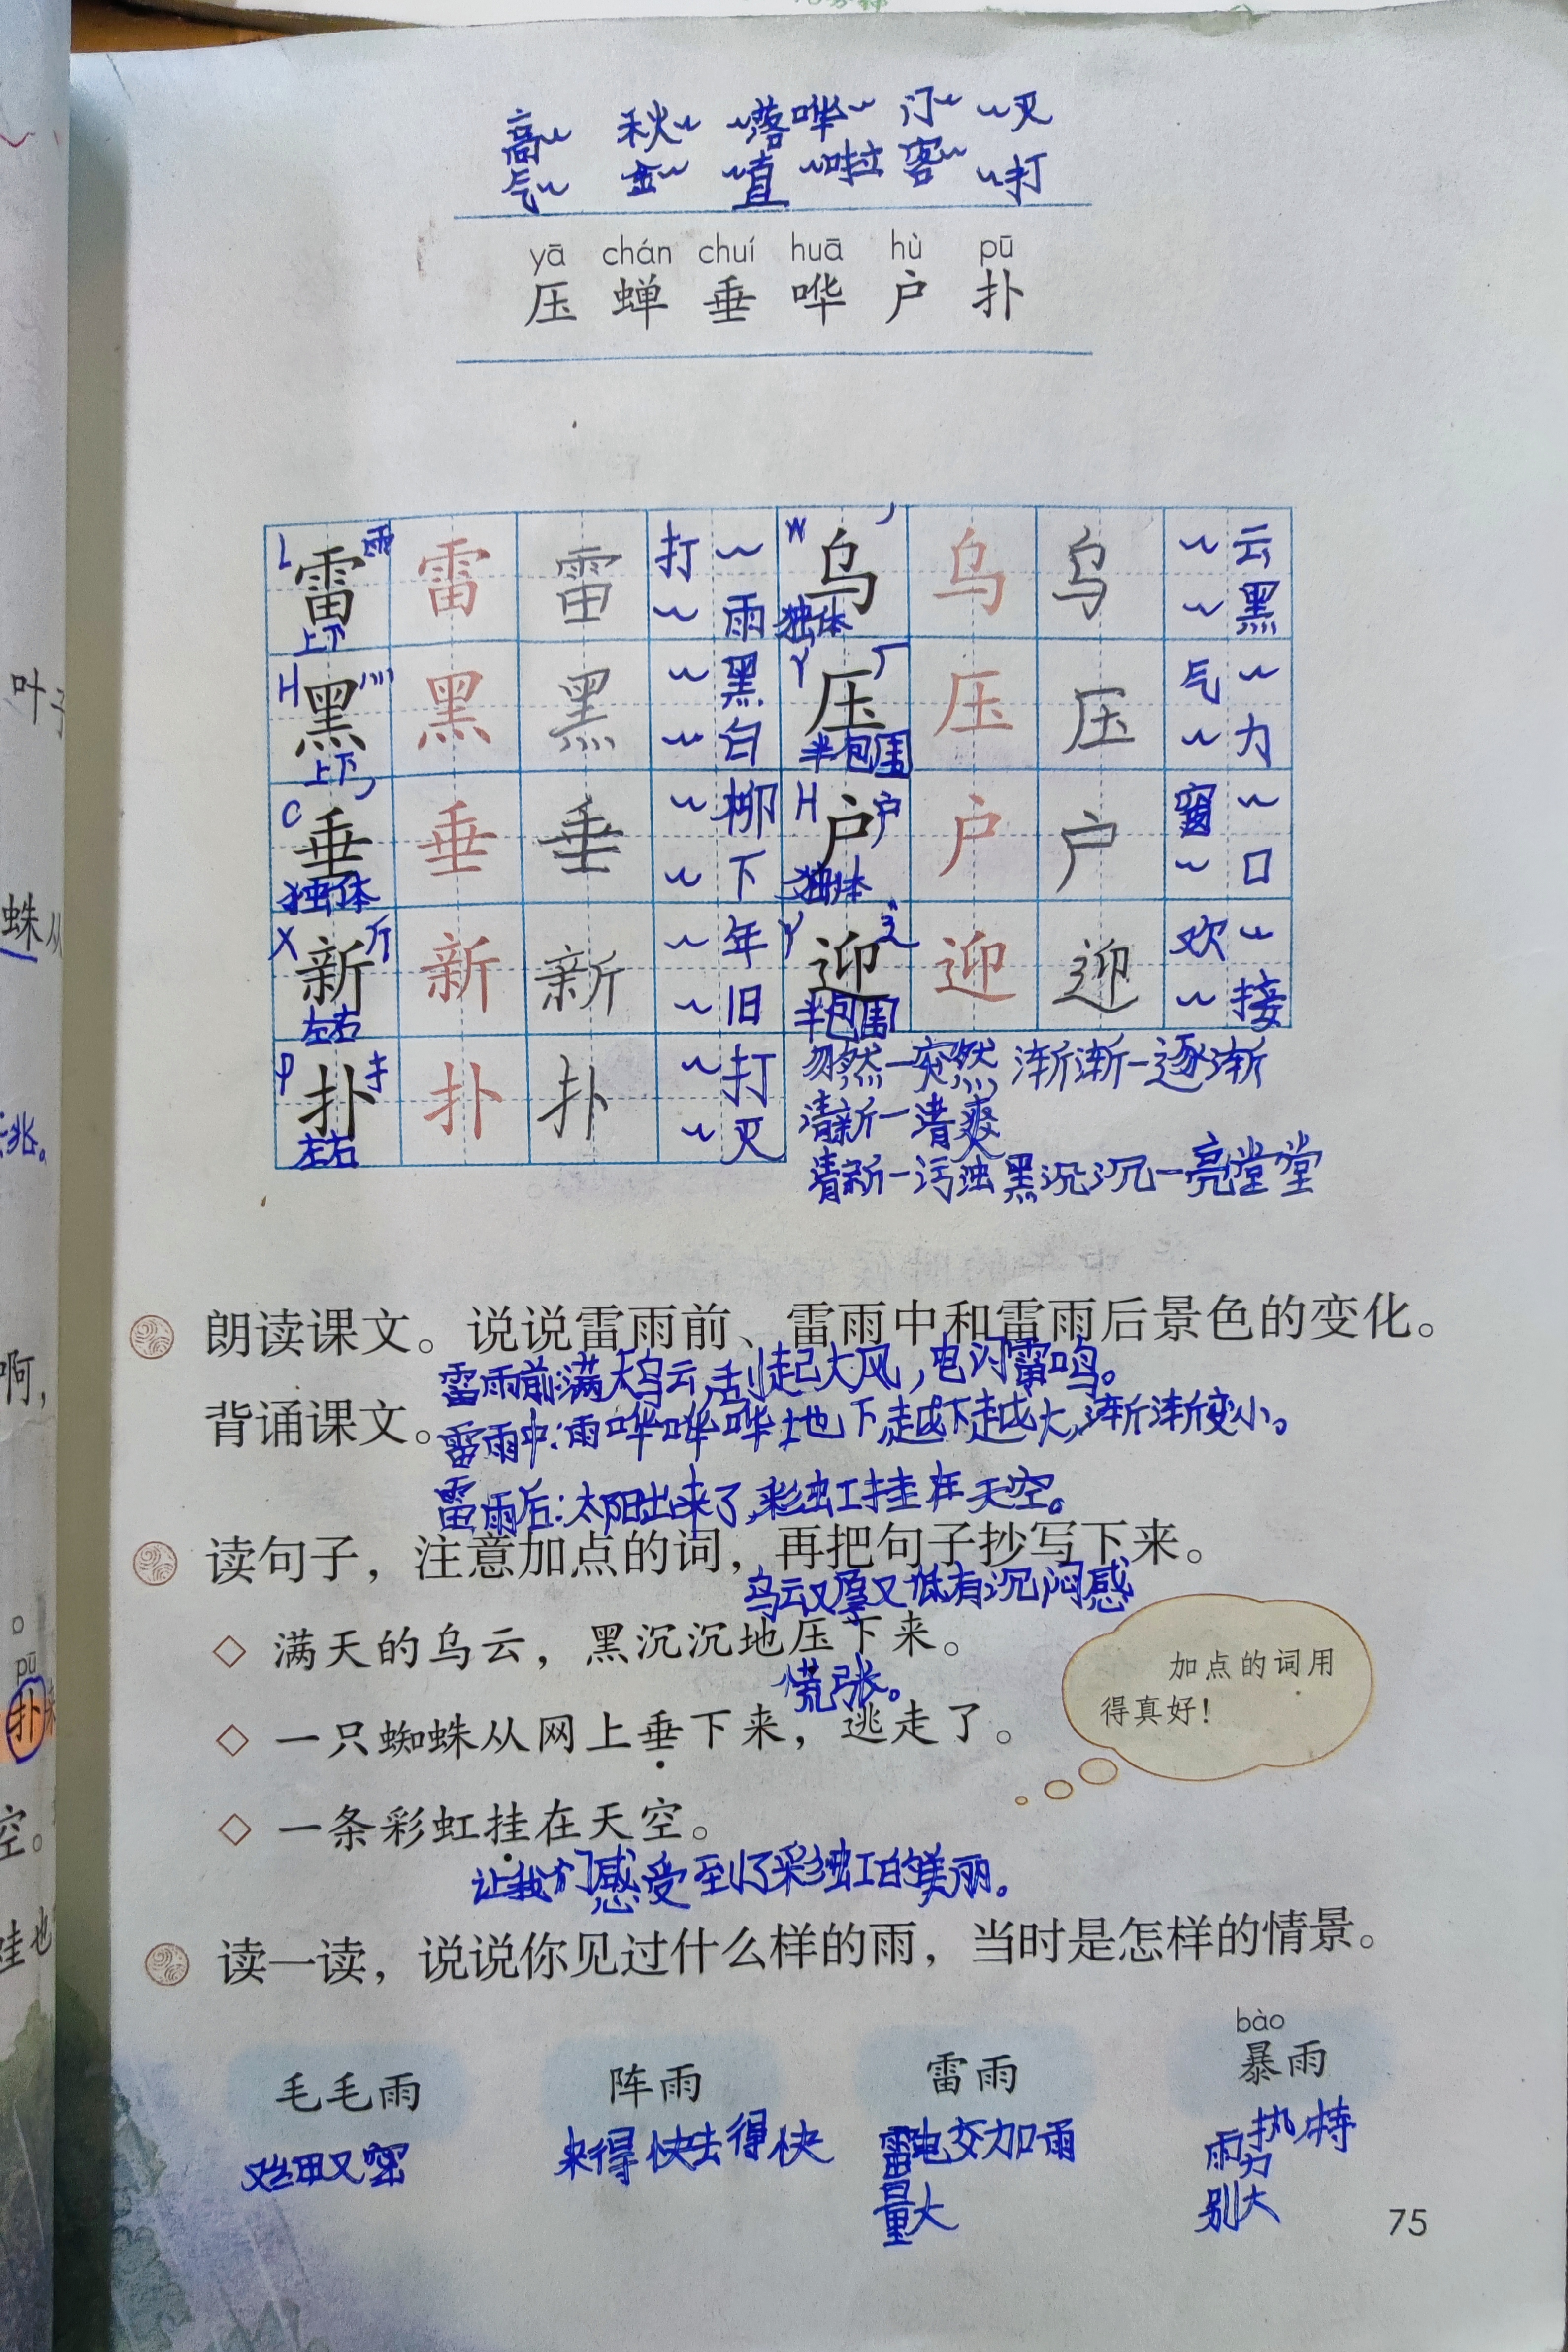 高~ 秋~ ~落 哗~ 门~ ~灭
气~ 金~ ~直 ~啦 客~ ~打
yā chán chuí huā hù pū
压 蝉 垂 哗 户 扑
L 雷 雨 雷 雷 打~ W 乌 丿 乌 乌 ~云
上下 ~雨 独体 ~黑
H 黑 灬 黑 黑 ~黑 Y 压 厂 压 压 气~
上下 ~白 半包围 ~力
C 垂 丿 垂 垂 ~柳 H 户 户 户 户 窗~
独体 ~下 独体 ~口
X 新 斤 新 新 ~年 Y 迎 辶 迎 迎 欢~
左右 ~旧 半包围 ~接
P 扑 扌 扑 扑 ~打 忽然—突然 渐渐—逐渐
左右 ~灭 清新—清爽
清新—污浊 黑沉沉—亮堂堂
朗读课文。说说雷雨前、雷雨中和雷雨后景色的变化。
雷雨前:满天乌云,刮起大风,电闪雷鸣。
背诵课文。
雷雨中:雨哗哗哗地下,越下越大,渐渐变小。
雷雨后:太阳出来了,彩虹挂在天空。
读句子,注意加点的词,再把句子抄写下来。
乌云又厚又低有沉闷感
◇ 满天的乌云,黑沉沉地压下来。
慌张。
◇ 一只蜘蛛从网上垂下来,逃走了。
加点的词用
得真好!
◇ 一条彩虹挂在天空。
让我们感受到了彩虹的美丽。
读一读,说说你见过什么样的雨,当时是怎样的情景。
bào
毛毛雨 阵雨 雷雨 暴雨
又细又密 来得快去得快 雷电交加雨 雨势特
量大 别大
75
叶子
蛛从
逃。
啊,
。
pū
扑来
空。
蛙也